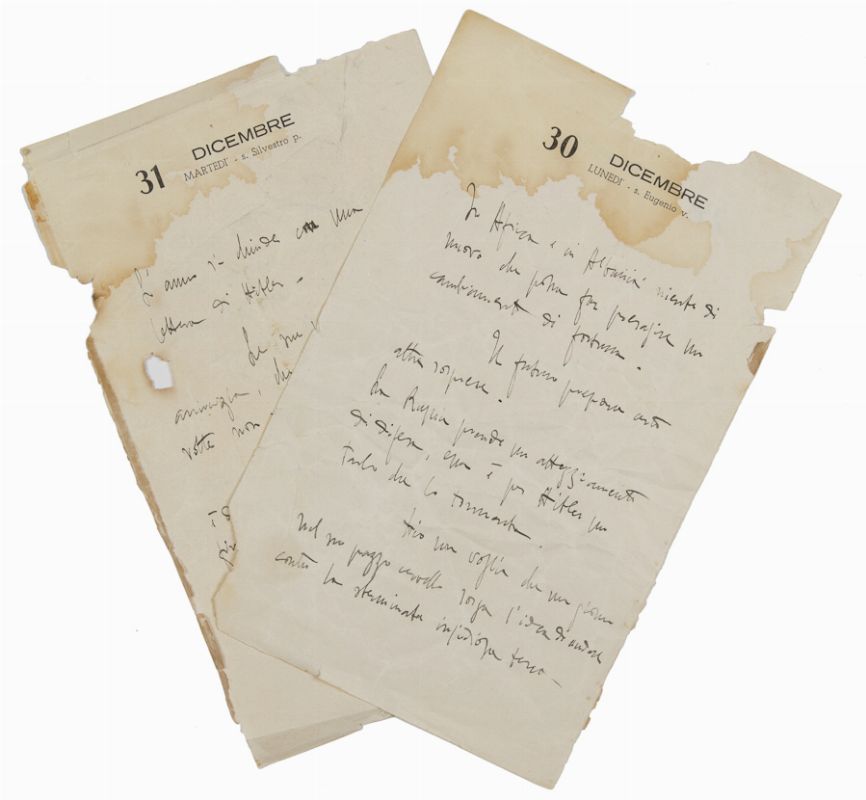 31 DICEMBRE
MARTEDÌ - s. Silvestro p.
L'anno si chiude con una
lettera di Hitler -
Le
amarezza, che
volte non
30 DICEMBRE
LUNEDÌ - s. Eugenio v.
In Africa e in Albania niente di
nuovo che possa far presagire un
cambiamento di fortuna -
Il futuro prepara
altre sorprese -
La Russia prende un atteggiamento
di difesa, essa è per Hitler un
tarlo che lo tormenta.
Ho una voglia che un giorno
nel suo pazzo cervello sorga l'idea di andare
contro la sterminata insidiosa terra -